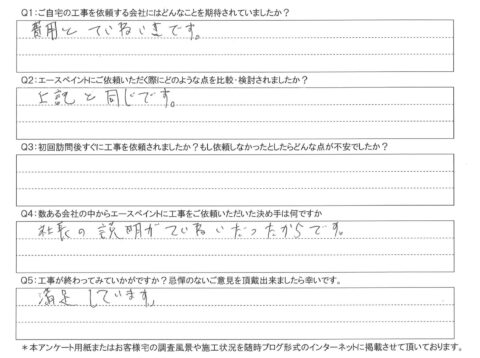 Q1:ご自宅の工事を依頼する会社にはどんなことを期待されていましたか?
費用とていねいさです。
Q2:エースペイントにご依頼いただく際にどのような点を比較・検討されましたか?
上記と同じです。
Q3:初回訪問後すぐに工事を依頼されましたか?もし依頼しなかったとしたらどんな点が不安でしたか?
Q4:数ある会社の中からエースペイントに工事をご依頼いただいた決め手は何ですか
社長の説明がていねいだったからです。
Q5:工事が終わってみていかがですか?忌憚のないご意見を頂戴出来ましたら幸いです。
満足しています。
*本アンケート用紙またはお客様宅の調査風景や施工状況を随時ブログ形式のインターネットに掲載させて頂いております。